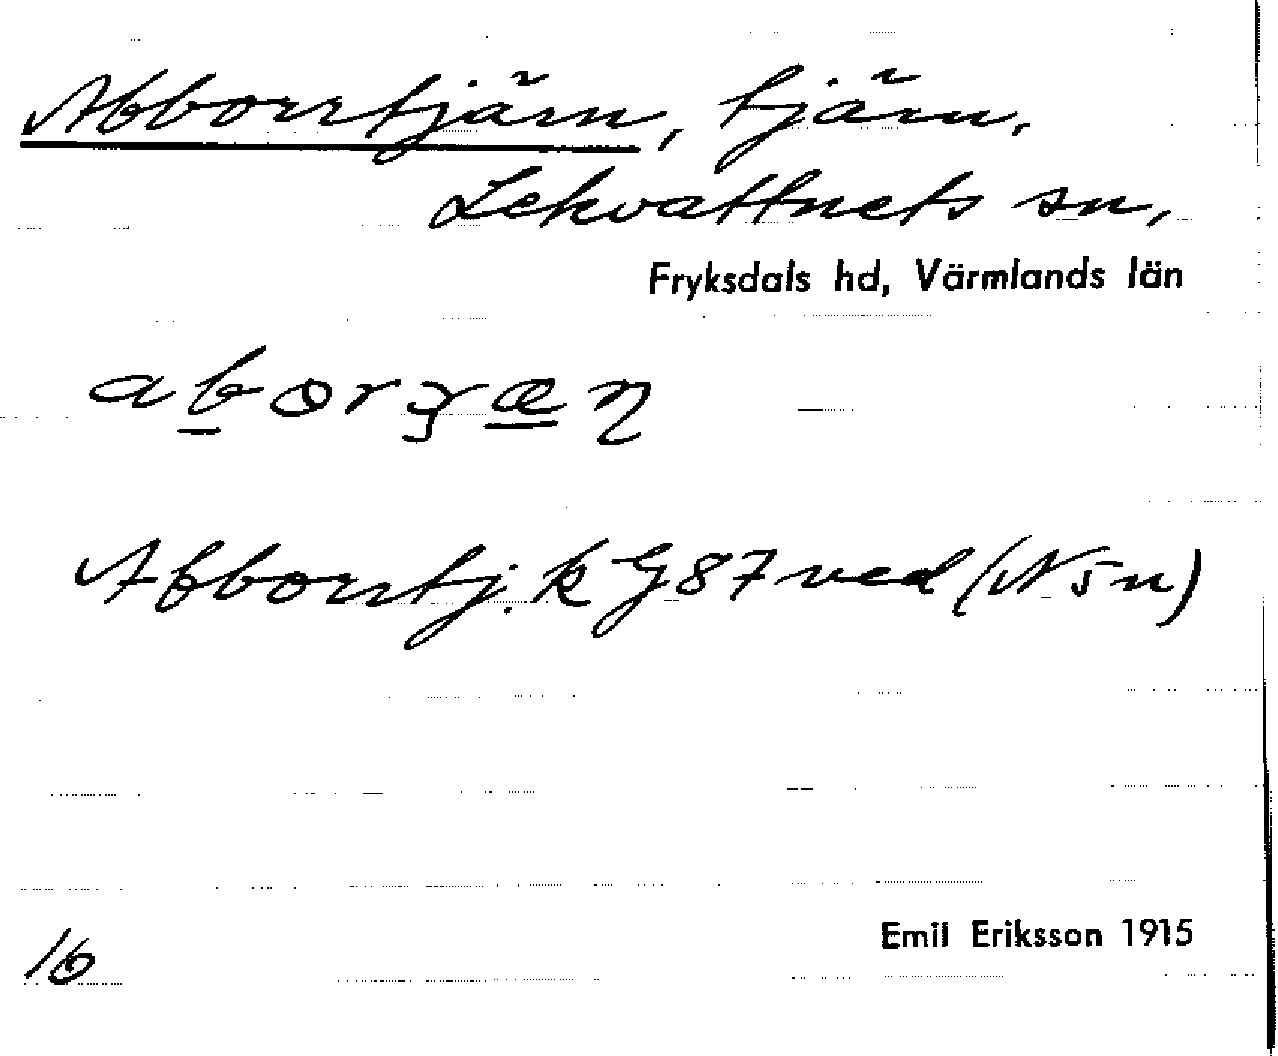 Abborrtjärn, tjärn,
Lekvattnets sn,
Fryksdals hd, Värmlands län
Abborrtj. k G87 ved (N sn)
Emil Eriksson 1915
16